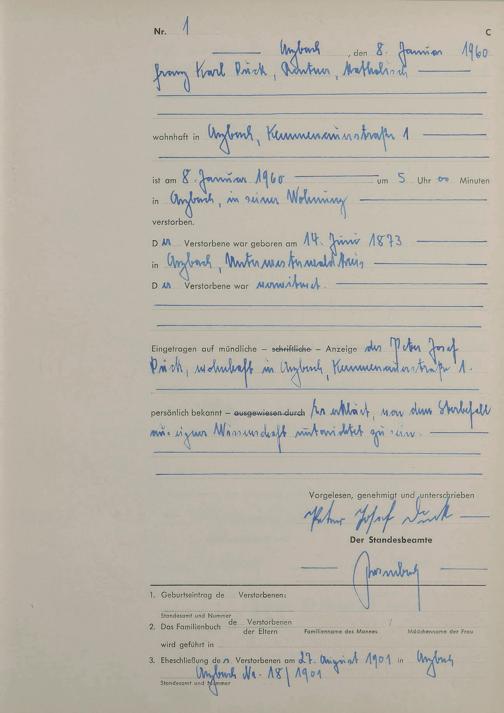 Nr. 1 C
Arzbach, den 8. Januar 1960
Franz Karl Dück, Rentner, katholisch
wohnhaft in Arzbach, Kemmenauerstraße 1
ist am 8. Januar 1960 um 5 Uhr 00 Minuten
in Arzbach, in seiner Wohnung
verstorben.
Der Verstorbene war geboren am 14. Juni 1873
in Arzbach, Unterwesterwaldkreis
Der Verstorbene war verwitwet.
Eingetragen auf mündliche – schriftliche – Anzeige des Peter Josef
Dück, wohnhaft in Arzbach, Kemmenauerstraße 1.
persönlich bekannt – ausgewiesen durch Er erklärt, von dem Sterbefall
aus eigner Wissenschaft unterrichtet zu sein.
Vorgelesen, genehmigt und unterschrieben
Peter Josef Dück
Der Standesbeamte
1. Geburtseintrag de Verstorbenen:
Standesamt und Nummer
2. Das Familienbuch de Verstorbenen der Eltern / Familienname des Mannes Mädchenname der Frau
wird geführt in
3. Eheschließung des Verstorbenen am 27. August 1901 in Arzbach
Arzbach Nr. 18/1901
Standesamt und Nummer